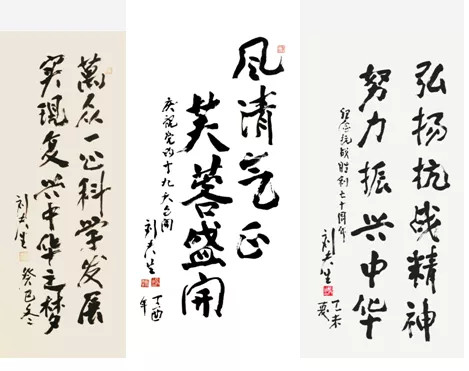 萬众一心科学发展
实现复兴中华之梦
刘夫生
癸巳冬
风清气正
芙蓉盛開
庆祝党的十九大召開
刘夫生
丁酉年
弘扬抗战精神
努力振兴中华
纪念抗战胜利七十周年
刘夫生
乙未夏